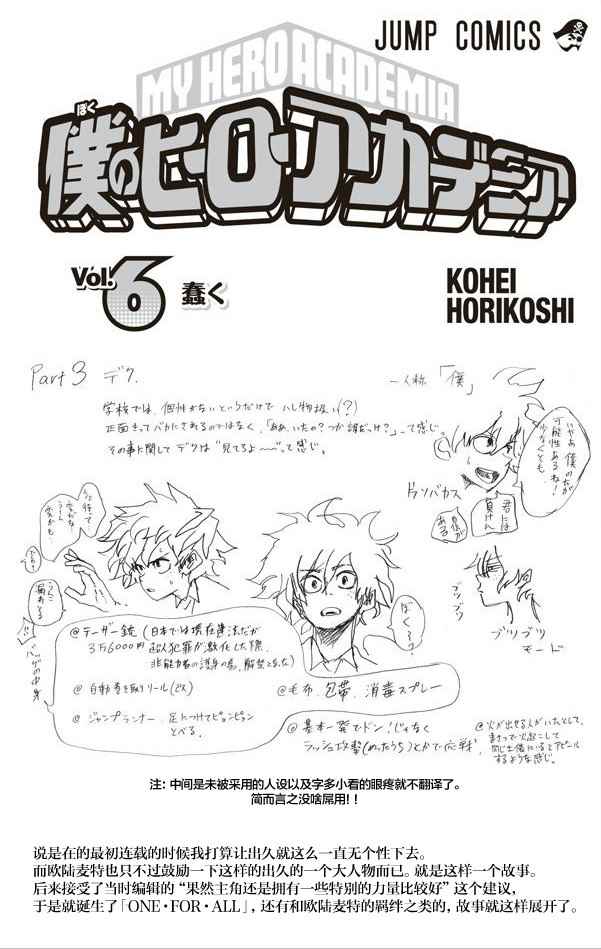 JUMP COMICS
MY HERO ACADEMIA
ぼく
僕のヒーローアカデミア
Vol.6
蠢く
KOHEI
HORIKOSHI
Part 3 デク.
一人称「僕」
学校では、個性がないというだけで ハレ物扱い(?)
正面きってバカにされるのではなく、「ああ、いたの?つか誰だっけ?」って感じ。
その事に関してデクは"見てろよ〜〜"って感じ。
いやあ 僕の方が
可能性あるね!
少なくとも
君には
負けん
自信が
ある
ドランバカス
ぼくう?
ブツブツ
ブツブツ
モード
@テーザー銃(日本では現在違法だが
3万6000円 超人犯罪が激化した際、
非能力者の護身の為、解禁となった)
@自動巻き取りリール(ビス)
@ジャンプランナー、足につけてピョンピョン
とべる。
@毛布、包帯、消毒スプレー
@基本一発でドン!じゃなく
ラッシュ攻撃(めったうち)とかで応戦。
@火が出せる人がいたとして、
まさつで火起こして
同じ土俵に立るとアピール
するような感じ。
バッグの中身
注: 中间是未被采用的人设以及字多小看的眼疼就不翻译了。
简而言之没啥屌用!!
说是在的最初连载的时候我打算让出久就这么一直无个性下去。
而欧陆麦特也只不过鼓励一下这样的出久的一个大人物而已。就是这样一个故事。
后来接受了当时编辑的“果然主角还是拥有一些特别的力量比较好”这个建议，
于是就诞生了「ONE·FOR·ALL」，还有和欧陆麦特的羁绊之类的，故事就这样展开了。